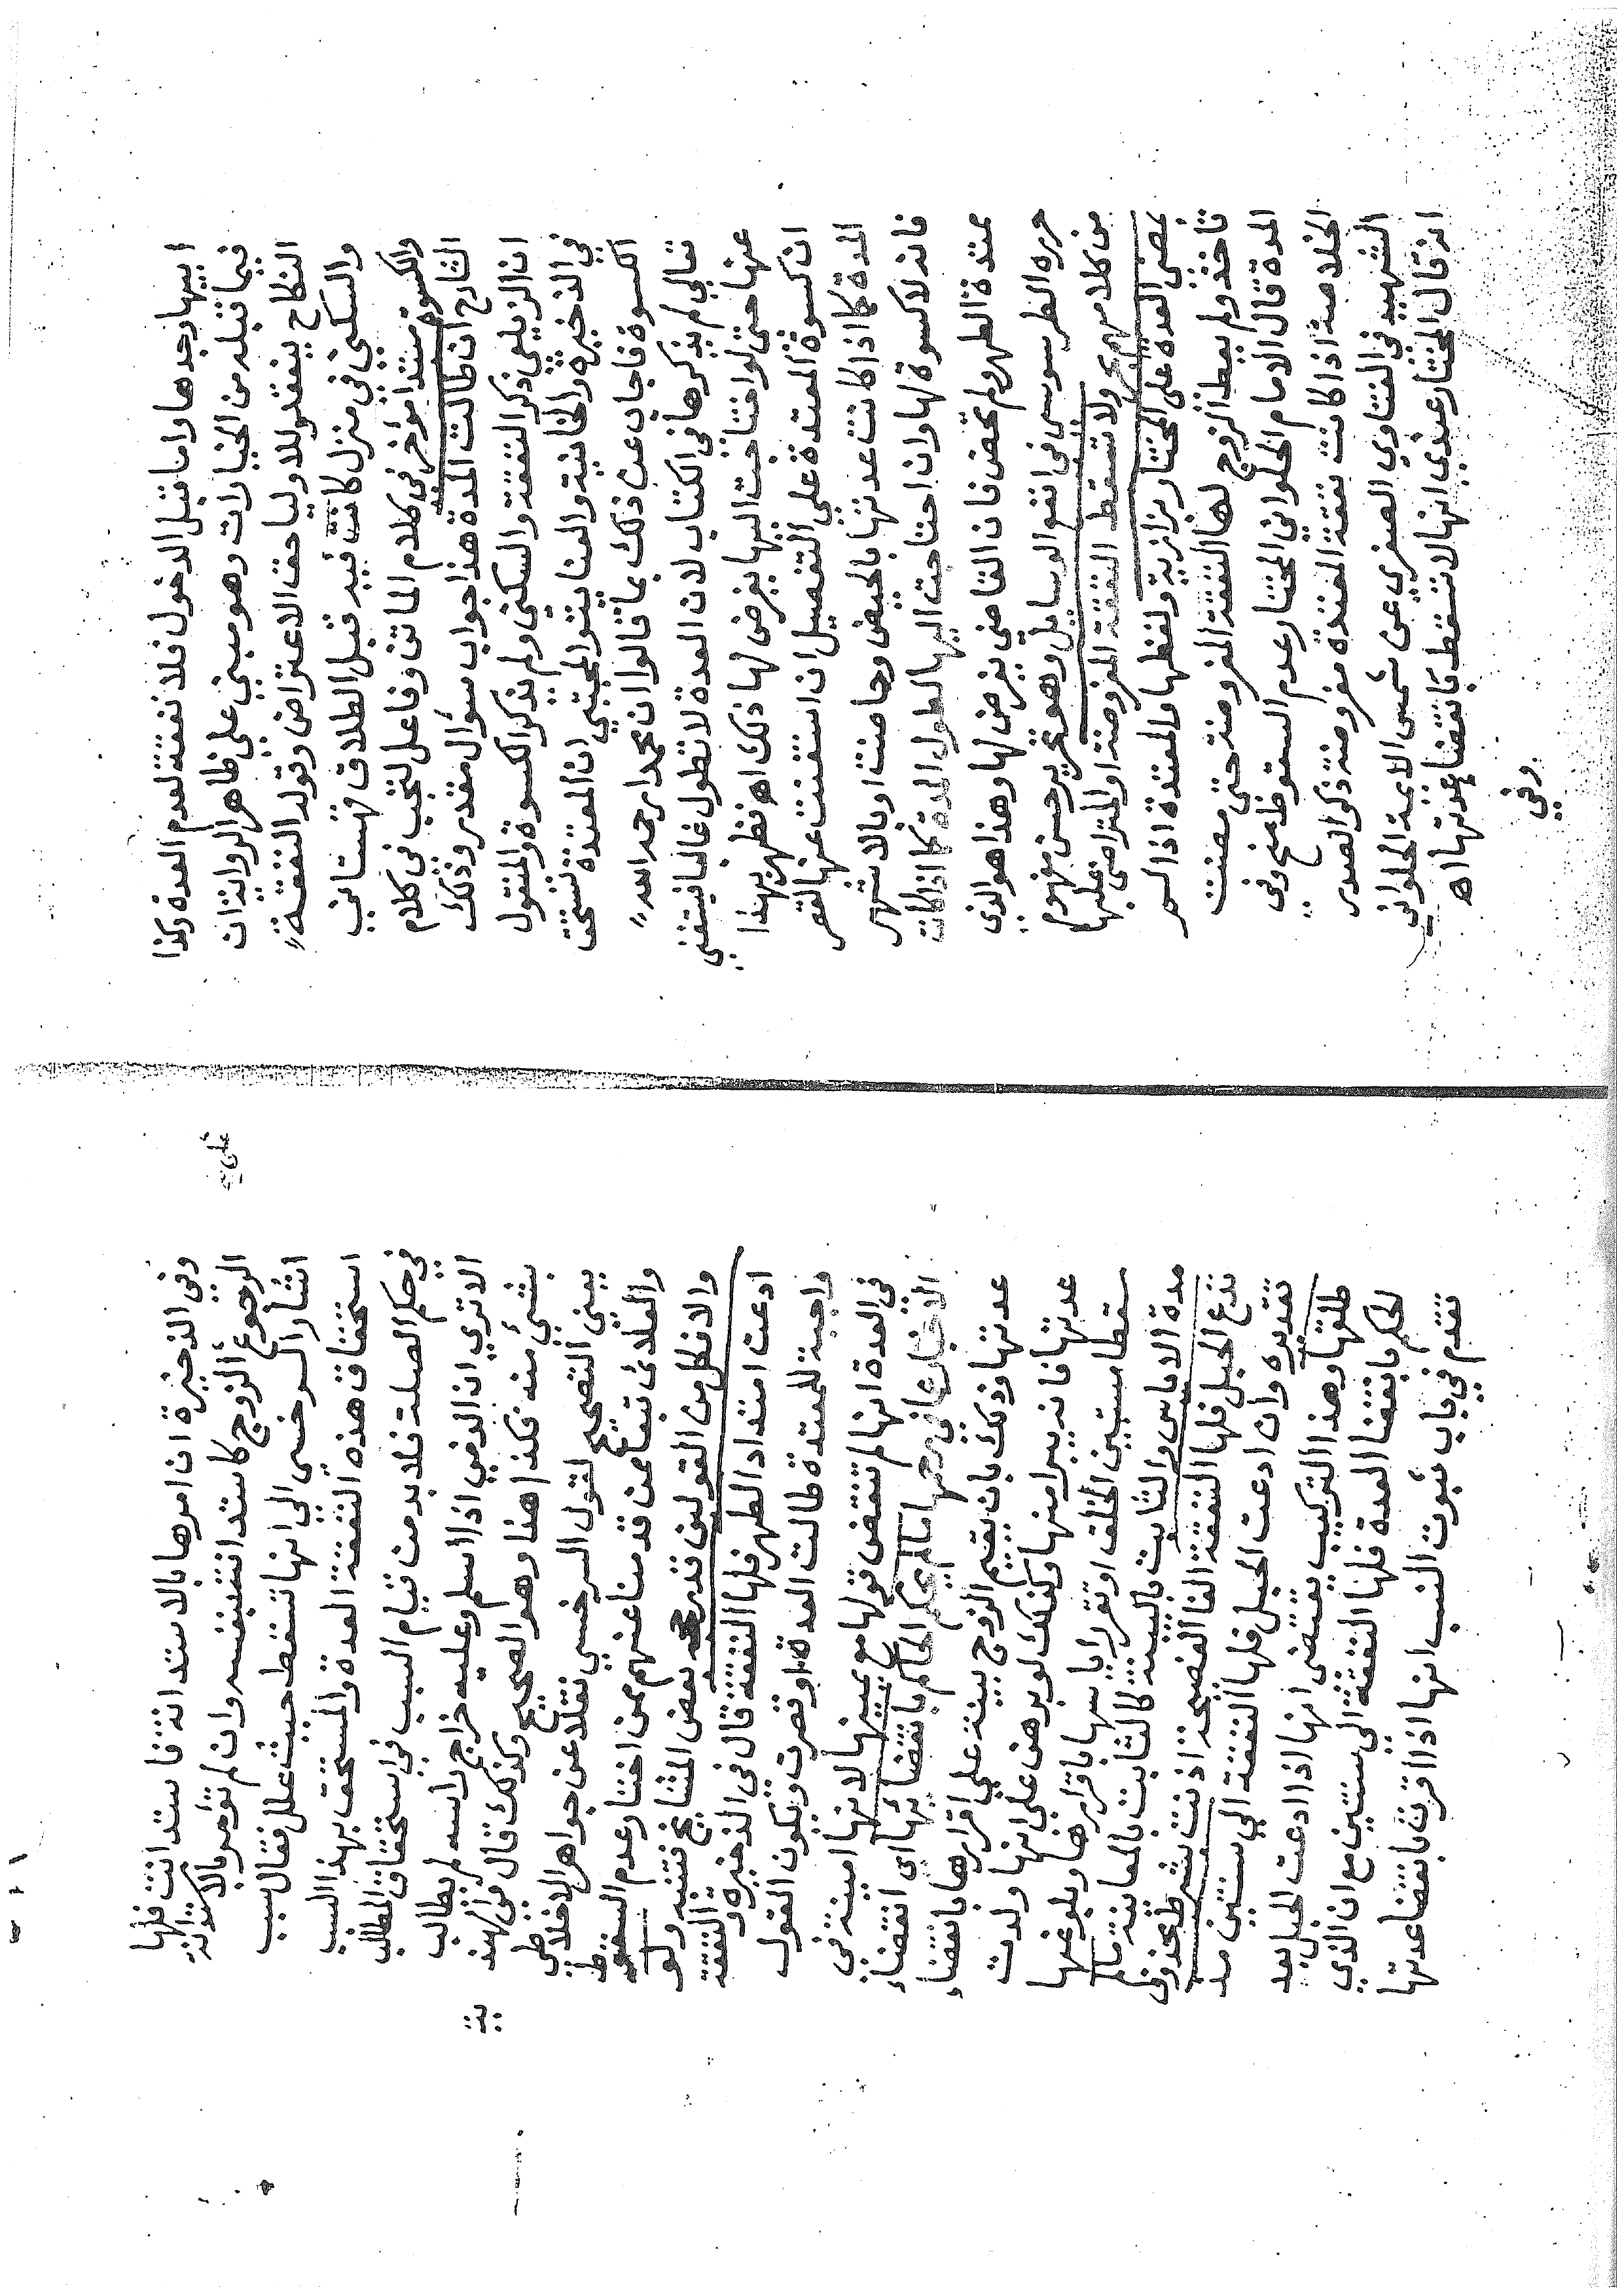 ابيها وجدها واما قبل الدخول فلا نفقة لعدم العدة وكذا
فيما قبله من الخيارات وهو مبني علي ظاهر الرواية ان
النكاح ينعقد للاوليا حق الاعتراض وقوله النفقة
والسكني في منزل كانت فيه قبل الطلاق قهستاني
والكسوة مبتدا مؤخر في كلام الماتن وفاعل لتجب في كلام
الشارح ان طالت المدة هذا جواب سؤال مقدر وذلك
ان الزيلعي ذكر النفقة والسكني ولم يذكر الكسوة والمنقول
في الذخيرة والخانية والعناية والمجتبي ان المعتدة تستحق
الكسوة فاجاب عن ذلك بما قالوا ان محمدا رحمه الله
تعالي لم يذكرها في الكتاب لان العدة لا تطول غالبا فيستغني
عنها حتي لو احتاجت اليها يفرض لها ذلك اهـ فظهر بهذا
ان كسوة المعتدة علي التفصيل ان استغنت عنها لقصر
المدة كما اذا كانت عدتها بالحيض وحاضت او بالاشهر
فانه لا كسوة لها وان احتاجت اليها لطول المدة كما اذا كانت
ممتدة الطهر ولم تحض فان القاضي يفرض لها وهذا هو الذي
حرره الطرسوسي في انفع الوسايل وهو تحرير حسن مفهوم
من كلامهم بحر ولا تسقط النفقة المفروضة او المتراضي عليها
بمضي العدة علي المختار بزازية ولفظها والمعتدة اذا لم
تاخذ ولم يعط الزوج لها النفقة المفروضة حتي مضت
المدة قال الامام الحلواني المختار عدم السقوط منح وفي
الخلاصة اذا كانت نفقة المعتدة مفروضة ذكر الصدر
الشهيد في الفتاوي الصغري عن شمس الايمة الحلواني
انه قال المختار عندي انها لا تسقط بانقضا عدتها اهـ
وفي
وفي الذخيرة ان امرها بالاستدانة فاستدانت فلها
الرجوع علي الزوج كاستدانته بنفسه وان لم تؤمر بالاستدانة
اشار السرخسي الي انها تسقط حيث علل فقال سبب
استحقاق هذه النفقة العدة والمستحق بهذا السبب
في حكم الصلة فلا بد من قيام السبب في استحقاق المطالبة
الا تري ان الذمي اذا اسلم وعليه خراج راسه لم يطالب
بشيء منه فكذا هذا وهو الصحيح وكذلك قال في الهندية
يعني التصحيح لقول السرخسي نقلا عن جواهر الاخلاطي
والعلائ تبع من قدمنا عنهم ممن اختار عدم السقوط
والا فكل من القولين قد رجحه بعض المشايخ فتنبه ولو
ادعت امتداد الطهر فلها النفقة قال في الذخيرة والنفقة
واجبة للمعتدة طالت العدة او قصرت ويكون القول
في العدة انها لم تنقض قولها مع يمينها لانها امينة في
الاخبار عما في رحمها ما لم يحكم الحاكم بانقضائها اي انقضاء
عدتها وذلك بان يقيم الزوج بينة علي اقرارها بانقضاء
عدتها فانه يبرا منها وكذلك لو برهن علي انها ولدت
سقطا مستبين الخلق او تقر باياسها باقرارها وبلوغها
مدة الاياس والثابت بالبينة كالثابت بالمعاينة ما لم
تدع الحبل فلها النفقة الفا الفصيحة اذ نت بشرط محذوف
تقديره وان ادعت الحبل فلها النفقة الي سنتين مذ
طلقها وهذا التركيب يقتضي انها اذا ادعت الحبل بعد
الحكم بانقضا العدة فلها النفقة الي سنتين مع ان الذي
تقدم في باب ثبوت النسب انها اذا اقرت بانقضا عدتها